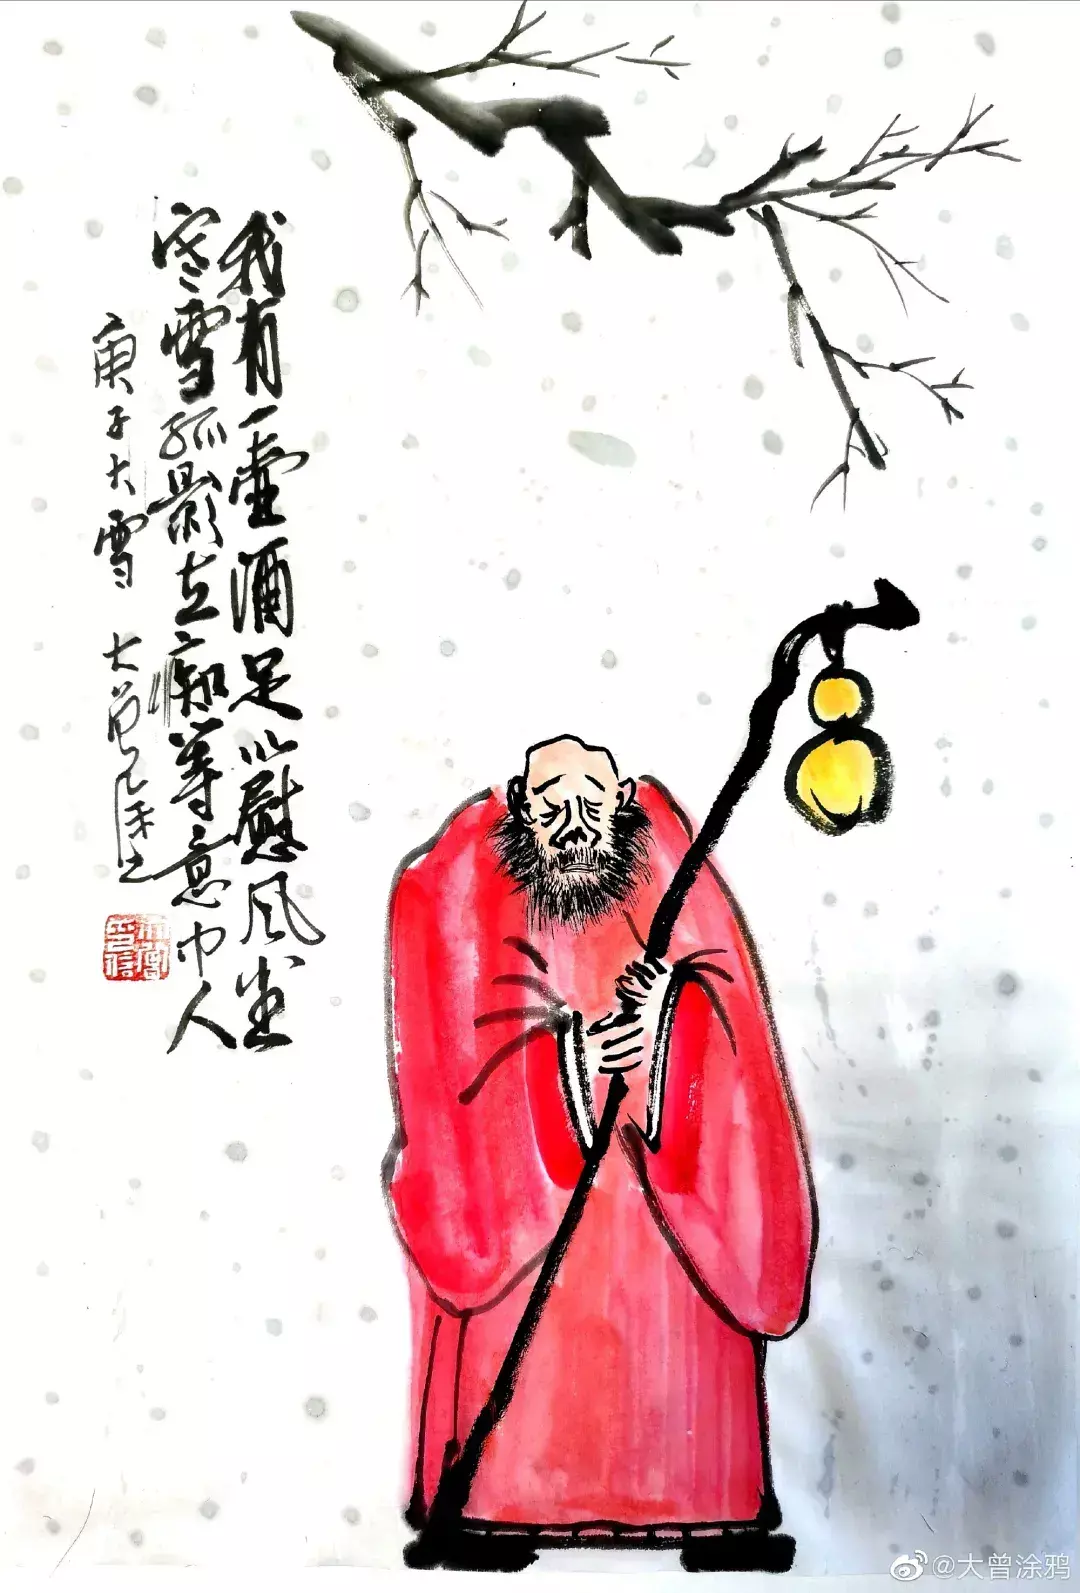 我有一壶酒足以慰风尘
寒雪孤影立痴等意中人
庚子大雪 大曾
@大曾涂鸦